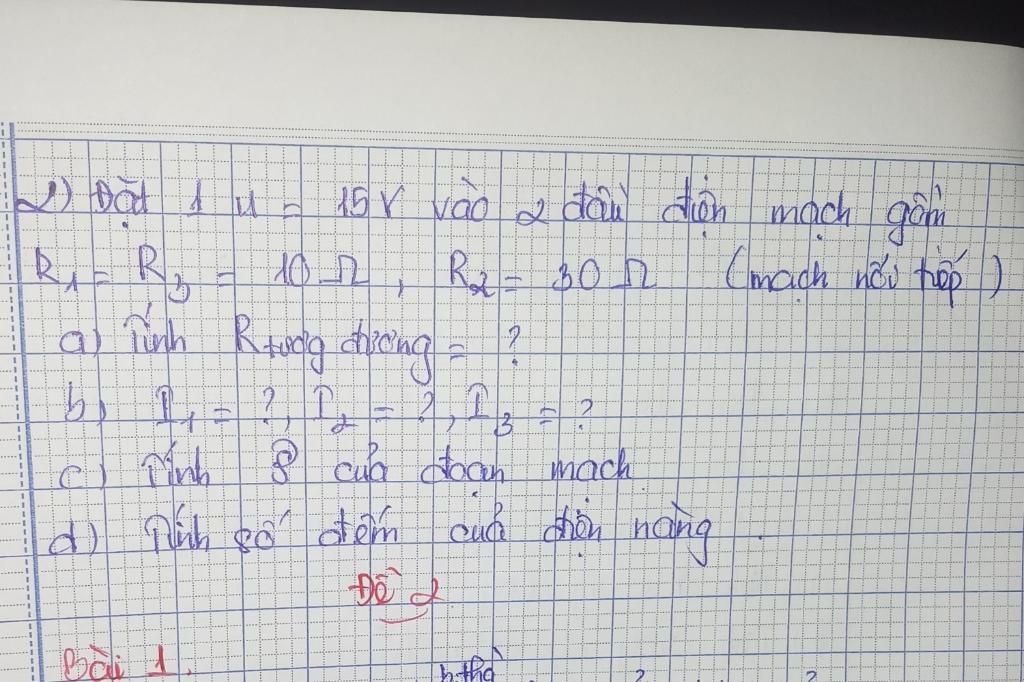 2) Đặt 1 U = 15V vào 2 đầu điện mạch gồm
R1 = R3 = 10 Ω, R2 = 30 Ω (mạch nối tiếp)
a) Tính Rtương đương = ?
b) I1 = ?, I2 = ?, I3 = ?
c) Tính P của đoạn mạch
d) Tính số đếm của điện năng.
Đề 2
Bài 1.